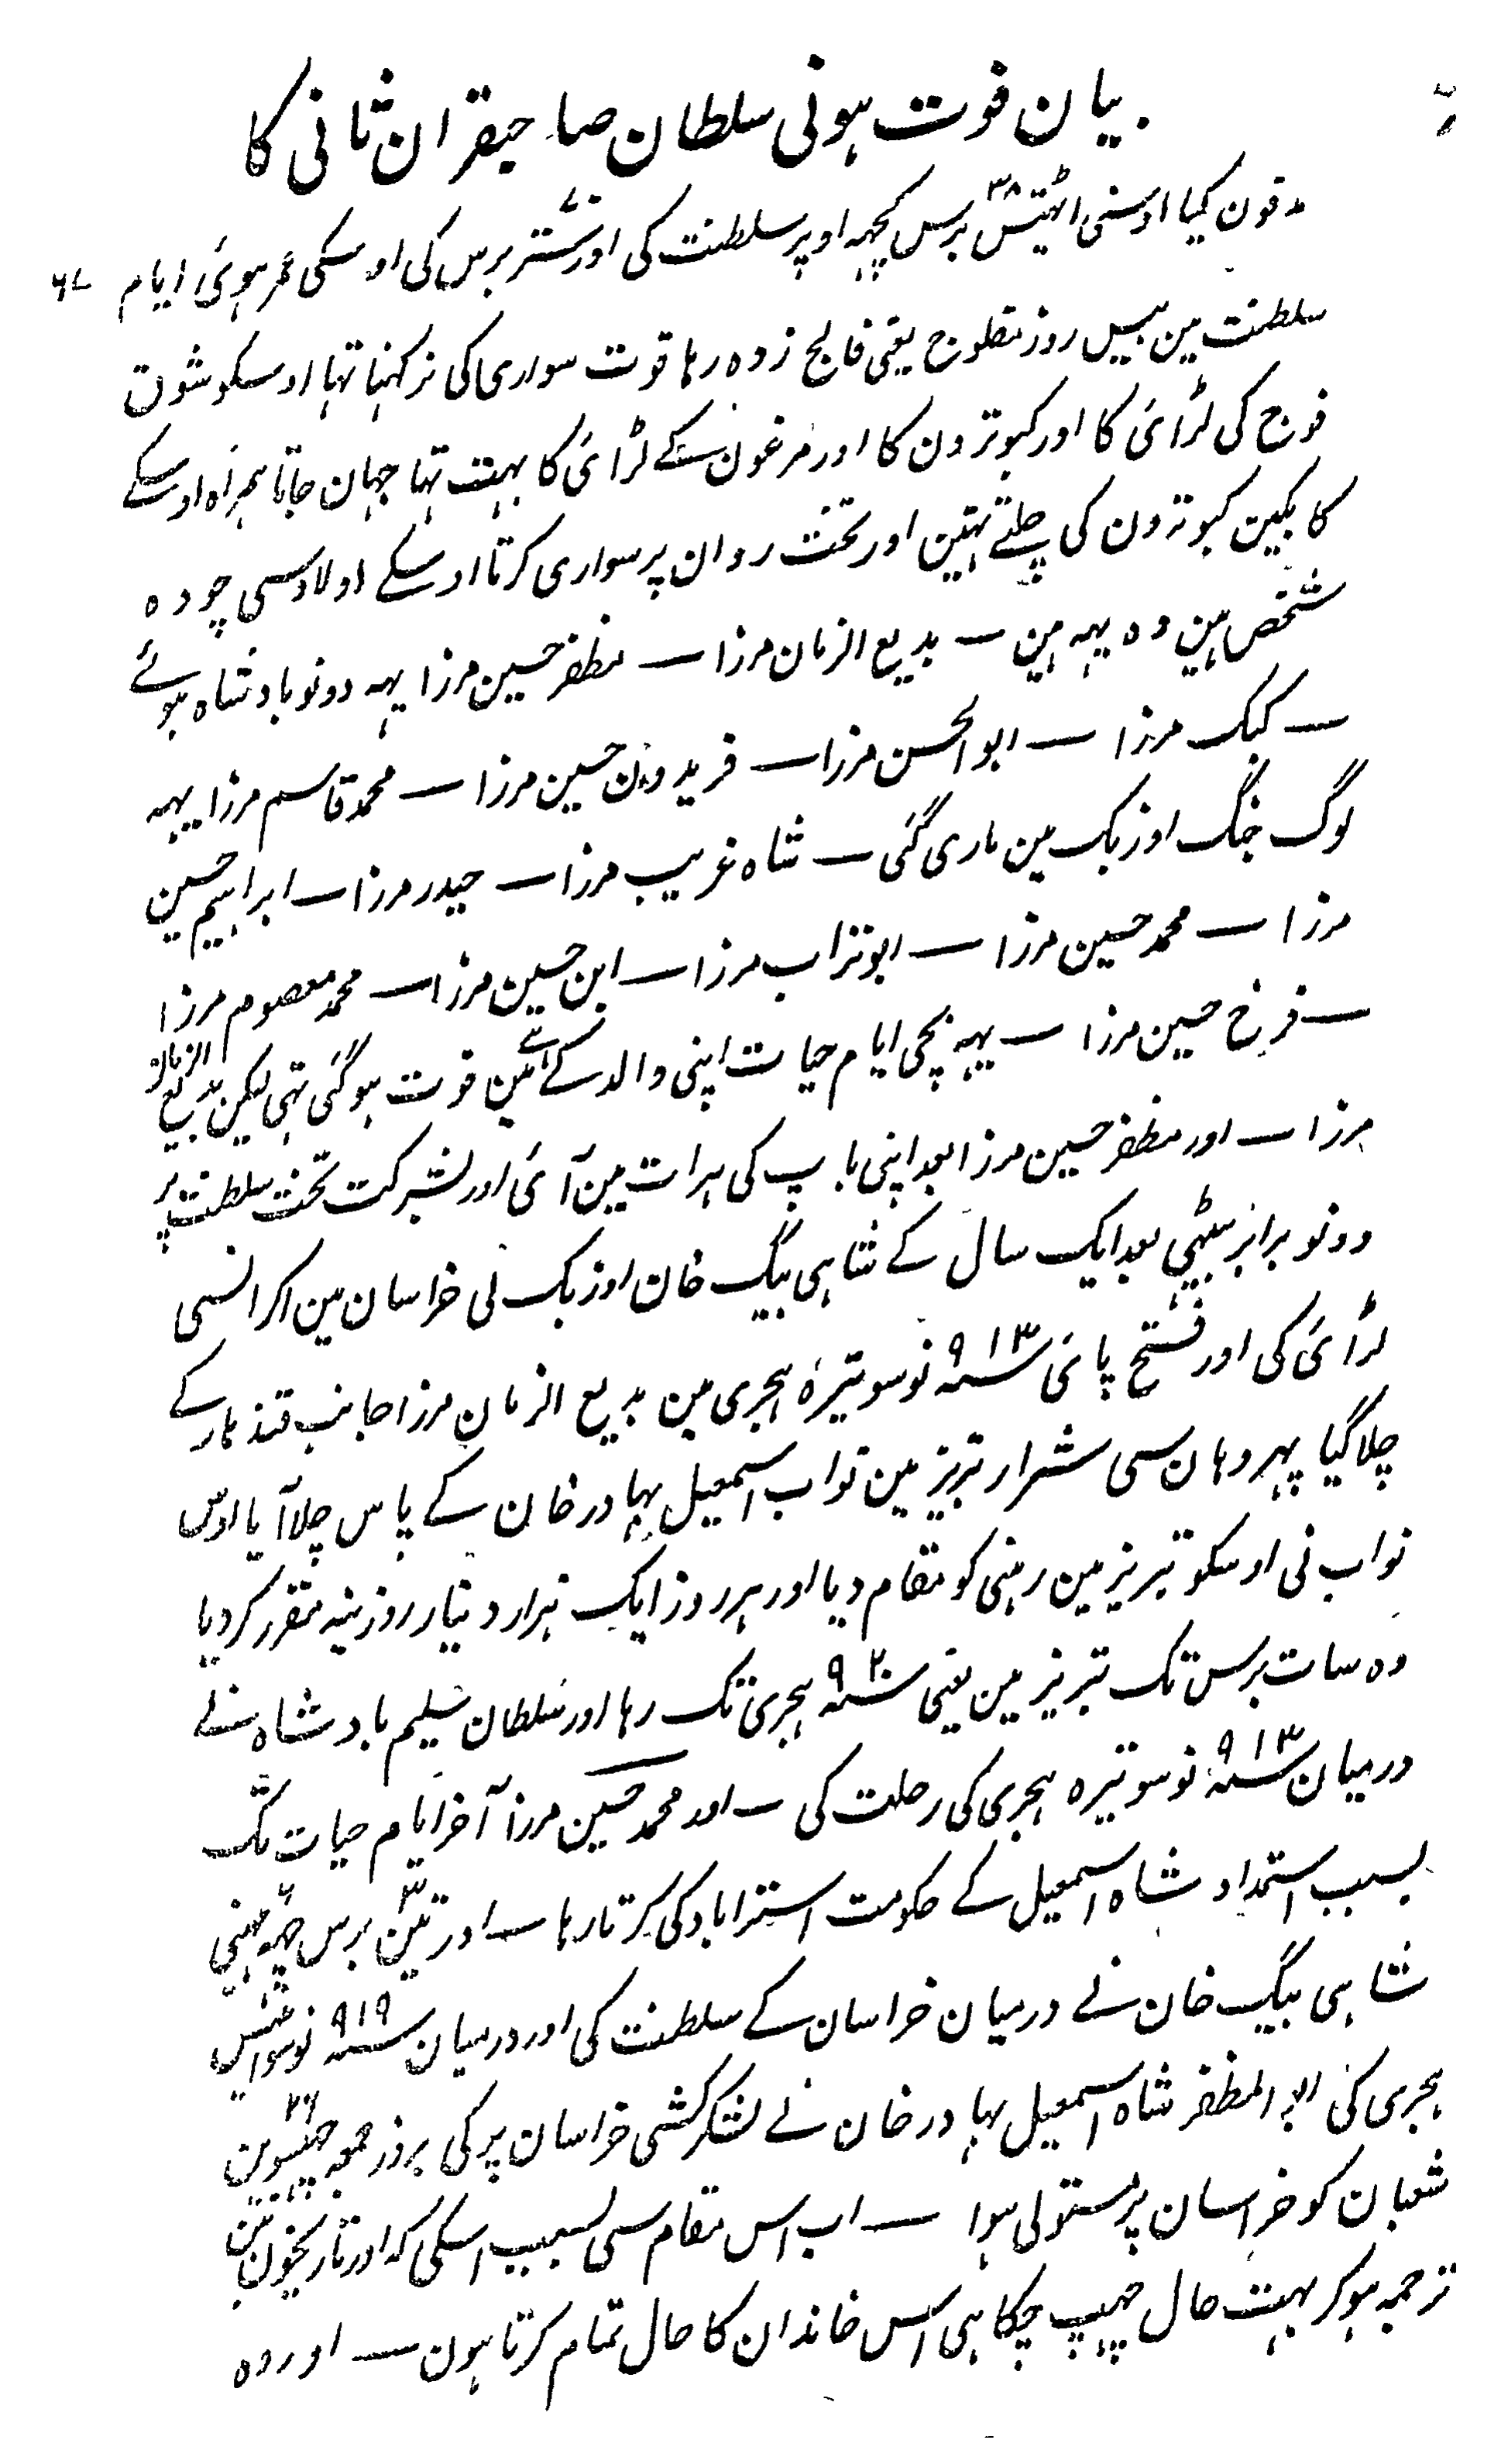 بیان فوت ہونی سلطان صاحبقران ثانی کا
مدفون کیا اوسنی اٹھتیس ۳۸ برس کچہہ اوپر سلطنت کی اور ستر ۷۰ برس کی اوسکی عمر ہوئی ایام
سلطنت مین بیس روز مفلوج یعنی فالج زدہ رہا قوت سواری کی نرکہتا تہا اوسکو شوق
فوج کی لڑائی کا اور کبوترون کا اور مرغون کے لڑائی کا بہت تہا جہان جاتا ہمراہ اوسکے
کابکین کبوترون کی چلتے تہین اور تخت روان پر سواری کرتا اوسکے اولاد سی چودہ
شخص ہین وہ یہہ ہین — بدیع الزمان مرزا — مظفر حسین مرزا یہہ دونو بادشاہ ہوئے
— کبک مرزا — ابوالحسن مرزا — فریدون حسین مرزا — محمد قاسم مرزا یہہ
لوگ جنگ اوزبک مین ماری گئی — شاہ غریب مرزا — حیدر مرزا — ابراہیم حسین
مرزا — محمد حسین مرزا — ابوتراب مرزا — ابن حسین مرزا — محمد معصوم مرزا
— فرخ حسین مرزا — یہہ بچی ایام حیات اپنی والد کے مین فوت ہوگئی تہی لیکن بدیع الزمان
مرزا — اور مظفر حسین مرزا بعد اپنی باپ کی ہرات مین آئی اور بشرکت تخت سلطنت پر
دونو برابر بیٹہی بعد ایک سال کے شاہی بیگ خان اوزبک نی خراسان مین اکر انسی
لڑائی کی اور فتح پائی سنہ ۹۱۳ نوسو تیرہ ہجری مین بدیع الزمان مرزا جانب قندہار کے
چلا گیا پہر وہان سی شہر تبریز مین نواب اسمعیل بہادر خان کے پاس چلا آیا اوس
نواب نی اوسکو تبریز مین رہنی کو مقام دیا اور ہر روز ایک ہزار دینار روزینہ مقرر کردیا
وہ سات برس تک تبریز مین یعنی سنہ ۹۲۰ ہجری تک رہا اور سلطان سلیم بادشاہ نے
درمیان سنہ ۹۱۳ نوسو تیرہ ہجری کی رحلت کی — اور محمد حسین مرزا آخر ایام حیات تک
بسبب استمداد شاہ اسمعیل کے حکومت استراباد کی کرتا رہا — اور تین ۳ برس چہہ ۶ مہینی
شاہی بیگ خان نے درمیان خراسان کے سلطنت کی اور درمیان سنہ ۹۱۹ نوسو انیس
ہجری کی ابو المظفر شاہ اسمعیل بہادر خان نے لشکر کشی خراسان پر کی بروز جمعہ چہبیسوین ۲۶
شعبان کو خراسان پر مستولی ہوا — اب اس مقام سی بسبب اسکی کہ اور تاریخون مین
ترجمہ ہوکر بہت حال چہپ چکا ہی اس خاندان کا حال تمام کرتا ہون — اور وہ